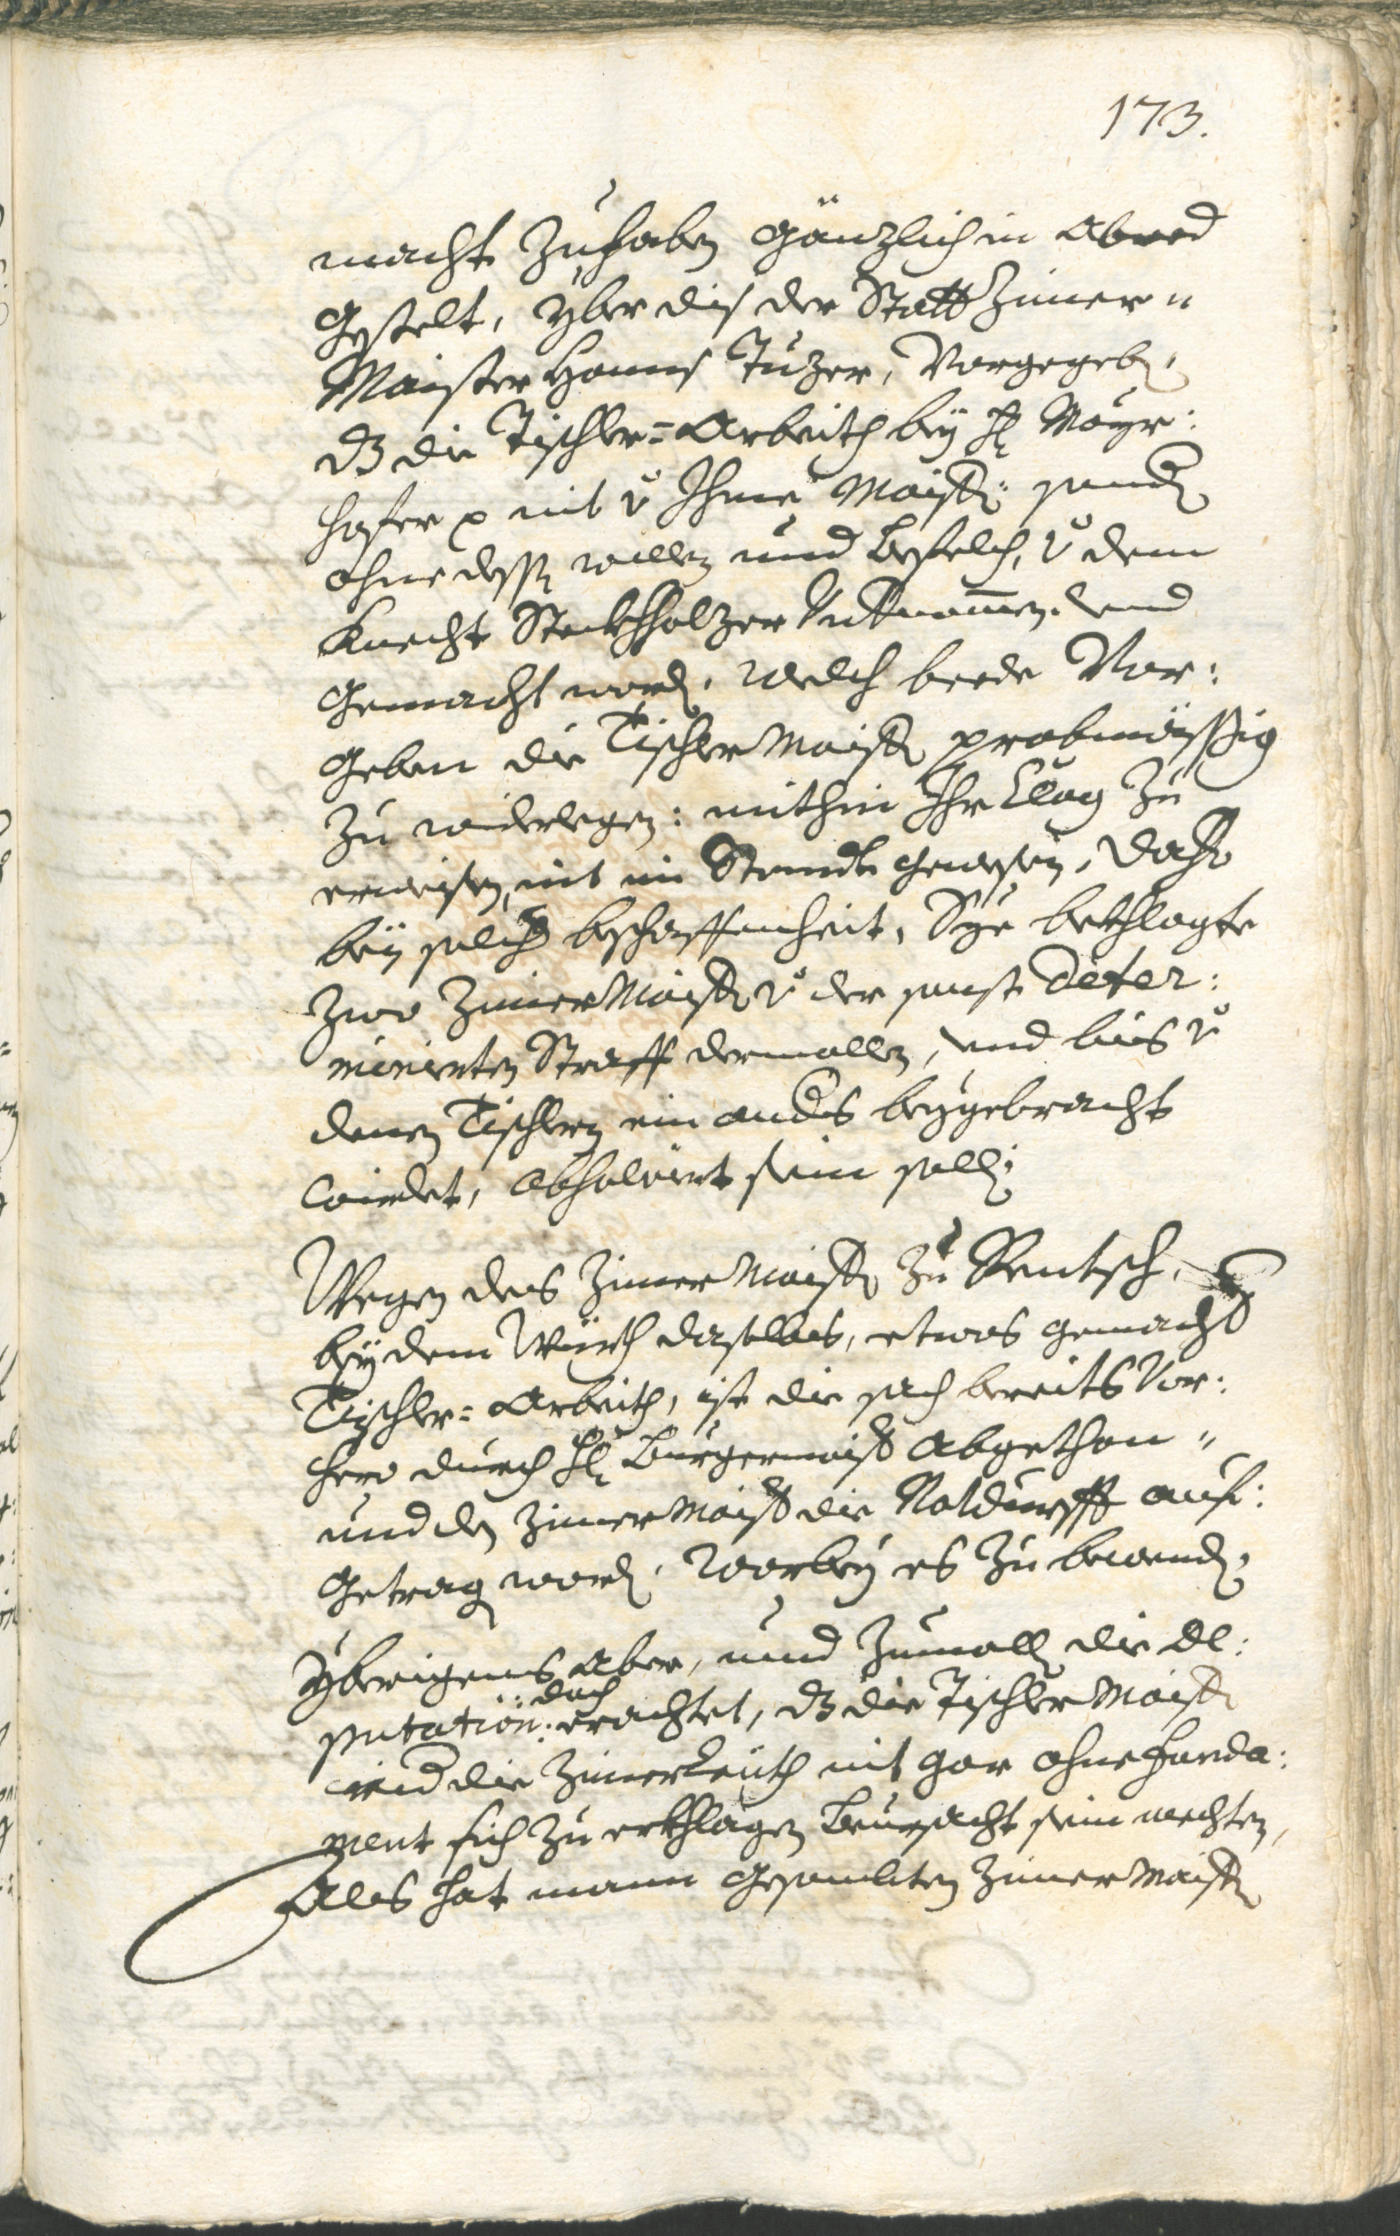 173.
macht zu haben gänzlich in abred
gestelt, yber dis der Statt Zimer¬
Maister Hanns Tuzer, vorgegeben,
dz die Tischler=Arbeith bey H: Mayr:
hofer p nit v Ihme Maister, sondern
ohne dessen willen und befelch, v dem
Knecht Steckholzer undternomen und
gemacht worden, welch beede Vor:
geben die Tischler Maister probmässig
zu widerlegen: mithin Ihr Clag zu
erweisen, nit im Standt gewesen, dahero
bey solcher beschaffenheit, Sye beklagte
zwo Zimer Maister v der sonst deter:
minierten Straff dermallen, und bis v
denen Tischlern ein anders beygebracht
wirdet, absolviert sein sollen;
Wegen des Zimer Maisters zu Rentsch,
bey dem Würth daselbs, etwas gemachter
Tischler=Arbeith, ist die sach bereits vor:
hero durch H: Burgermaister abgethan
und den Zimer Maister die Notdurfft auf:
getragen worden, worbey es zu bewenden;
Yberigens aber, und zumallen die De:
putation: doch erachtet, dz die Tischler Maister
wider die Zimerleuth nit gar ohne funda:
ment sich zu erklagen beursacht sein mechten,
Als hat mann gesambten Zimer Maistern